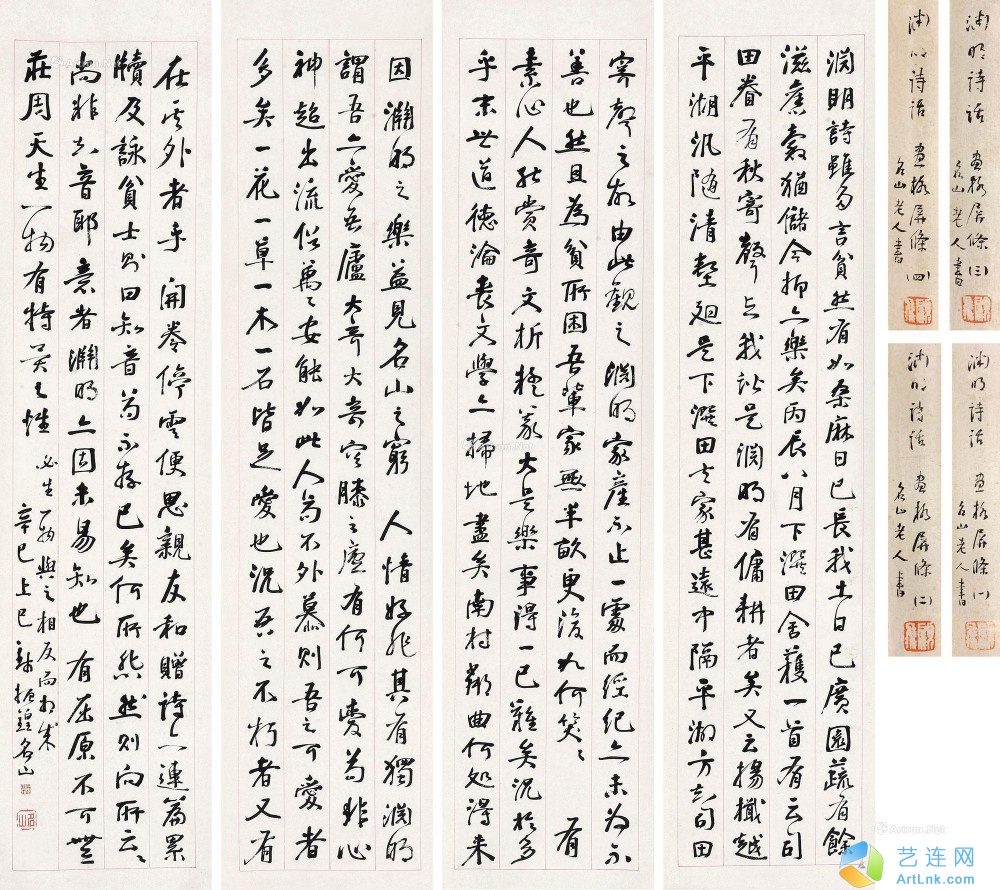 淵明詩雖多言貧然有如桑麻日已長我土日已廣園蔬有餘
滋舊穀猶儲今抑亦樂矣丙辰八月下潠田舍穫一首有云司
田眷有秋寄聲與我諧是淵明有傭耕者矣又云揚檝越
平湖汎隨清壑廻是下潠田去家甚遠中隔平湖方知司田
寄聲之故由此觀之淵明家產不止一處而經紀亦未為不
善也然且為貧所困吾輩家無半畝更復如何笑〻 有
素心人能賞奇文析疑義大是樂事得一已難矣況於多
乎末世道德淪喪文學亦掃地盡矣南村鄰曲何処得來
因淵明之樂益見名山之窮 人情好非其有獨淵明
謂吾亦愛吾廬大奇大奇容膝之廬有何可愛苟非心
神超出流俗萬〻安能如此人苟不外慕則吾之可愛者
多矣一花一草一木一石皆足愛也況吾之不朽者又有
在其外者乎 開卷停雲便思親友和贈詩亦連篇累
牘及詠貧士則曰知音苟不存已矣何所悲然則向所云〻
尚非知音耶意者淵明亦固未易知也 有屈原不可無
莊周天生一物有特異之性 必生一物與之相反而相成
辛巳上巳 錢振鍠名山
渊明诗话 画格屏條(一)
名山老人書
渊明诗话 画格屏條(二)
名山老人書
渊明诗話 画格屏條(三)
名山老人書
渊明诗话 画格屏條(四)
名山老人書
艺连网
ArtLnk.com